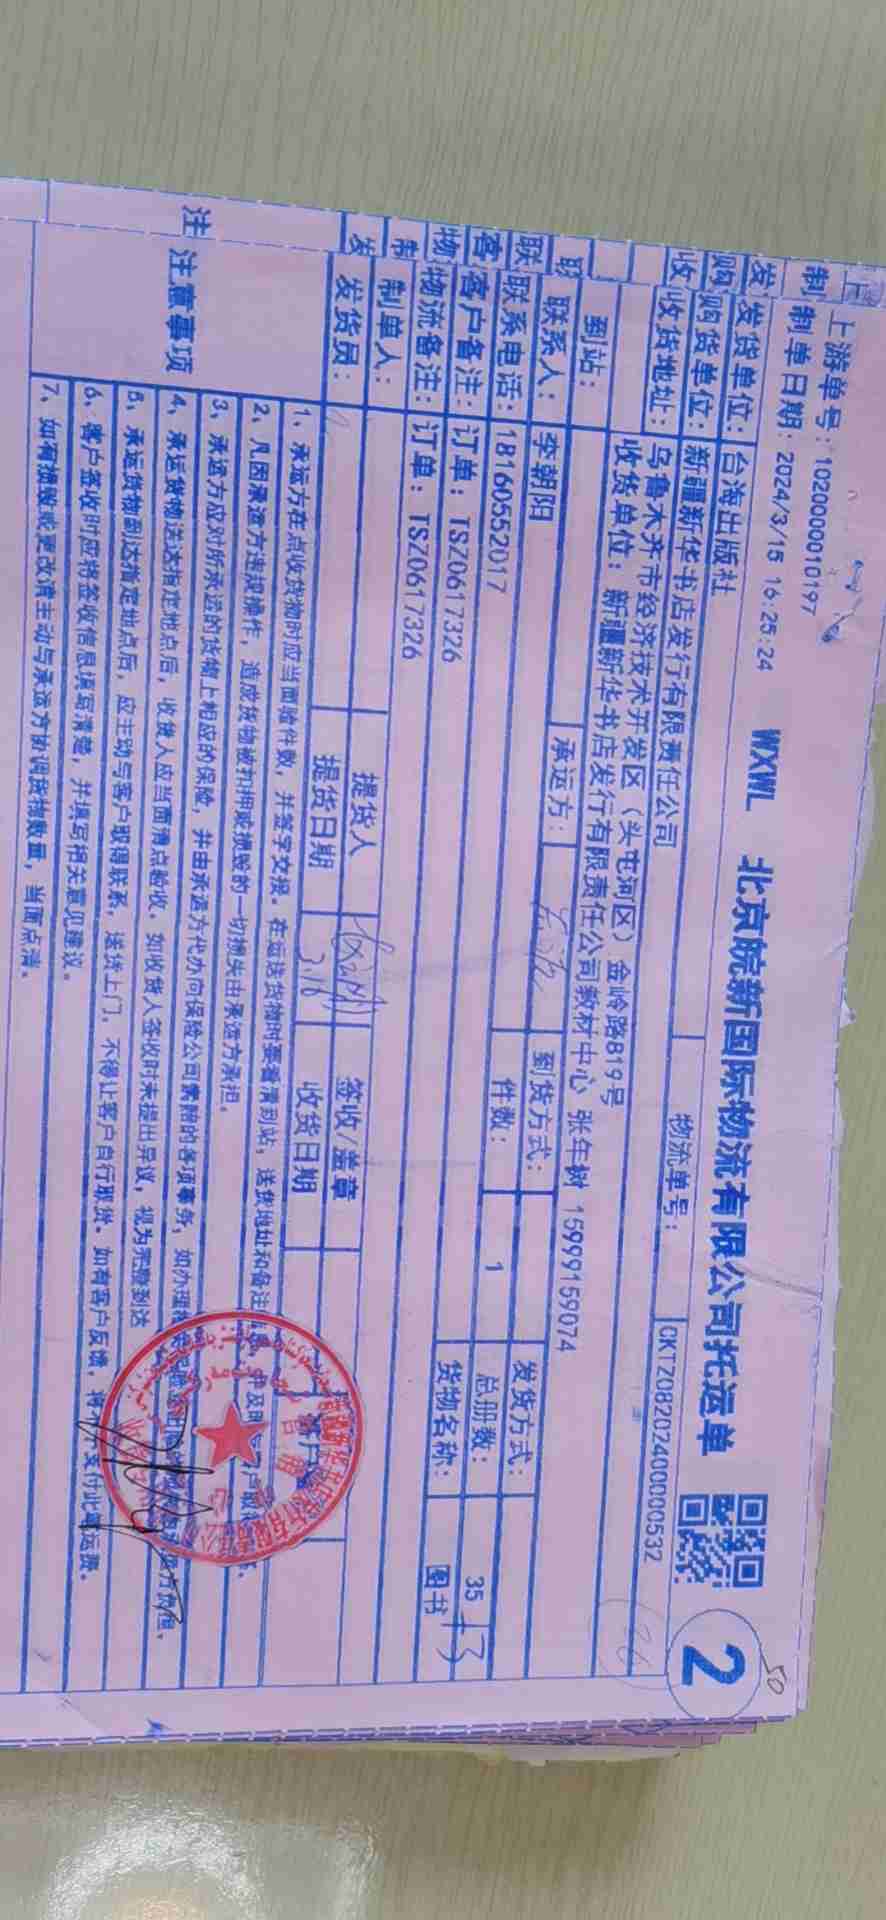 上游单号：102000010197
制单日期：2024/3/15 16:25:24
WXWL 北京皖新国际物流有限公司托运单
2
50
物流单号：
CKTZ0820240000532
发货单位：台海出版社
购货单位：新疆新华书店发行有限责任公司
收货地址：乌鲁木齐市经济技术开发区（头屯河区）金岭路819号
收货单位：新疆新华书店发行有限责任公司教材中心 张年树 15999159074
到站：
承运方：
到货方式：
发货方式：
联系人：李朝阳
件数：1
总册数：35
+3
联系电话：18160552017
货物名称：图书
客户备注：订单：TSZ0617326
物流备注：订单：TSZ0617326
制单人：
提货人
签收/盖章
发货员：
提货日期
3.16
收货日期
注意事项
1、承运方在点收货物时应当面验件数，并签字交接。在运送货物时要看清到站，送货地址和备注
2、凡因承运方违规操作，造成货物被扣押或损毁的一切损失由承运方承担。
3、承运方应对所承运的货物上相应的保险，并由承运方代办向保险公司索赔的各项事务，如办理
4、承运货物送达指定地点后，收货人应当面清点验收。如收货人签收时未提出异议，视为完整到达
5、承运货物到达指定地点后，应主动与客户取得联系，送货上门，不得让客户自行取货。如有客户反馈，将不予支付此单运费。
6、客户签收时应将签收信息填写清楚，并填写相关意见建议。
7、如有损毁或更改请主动与承运方协调货物数量，当面点清。